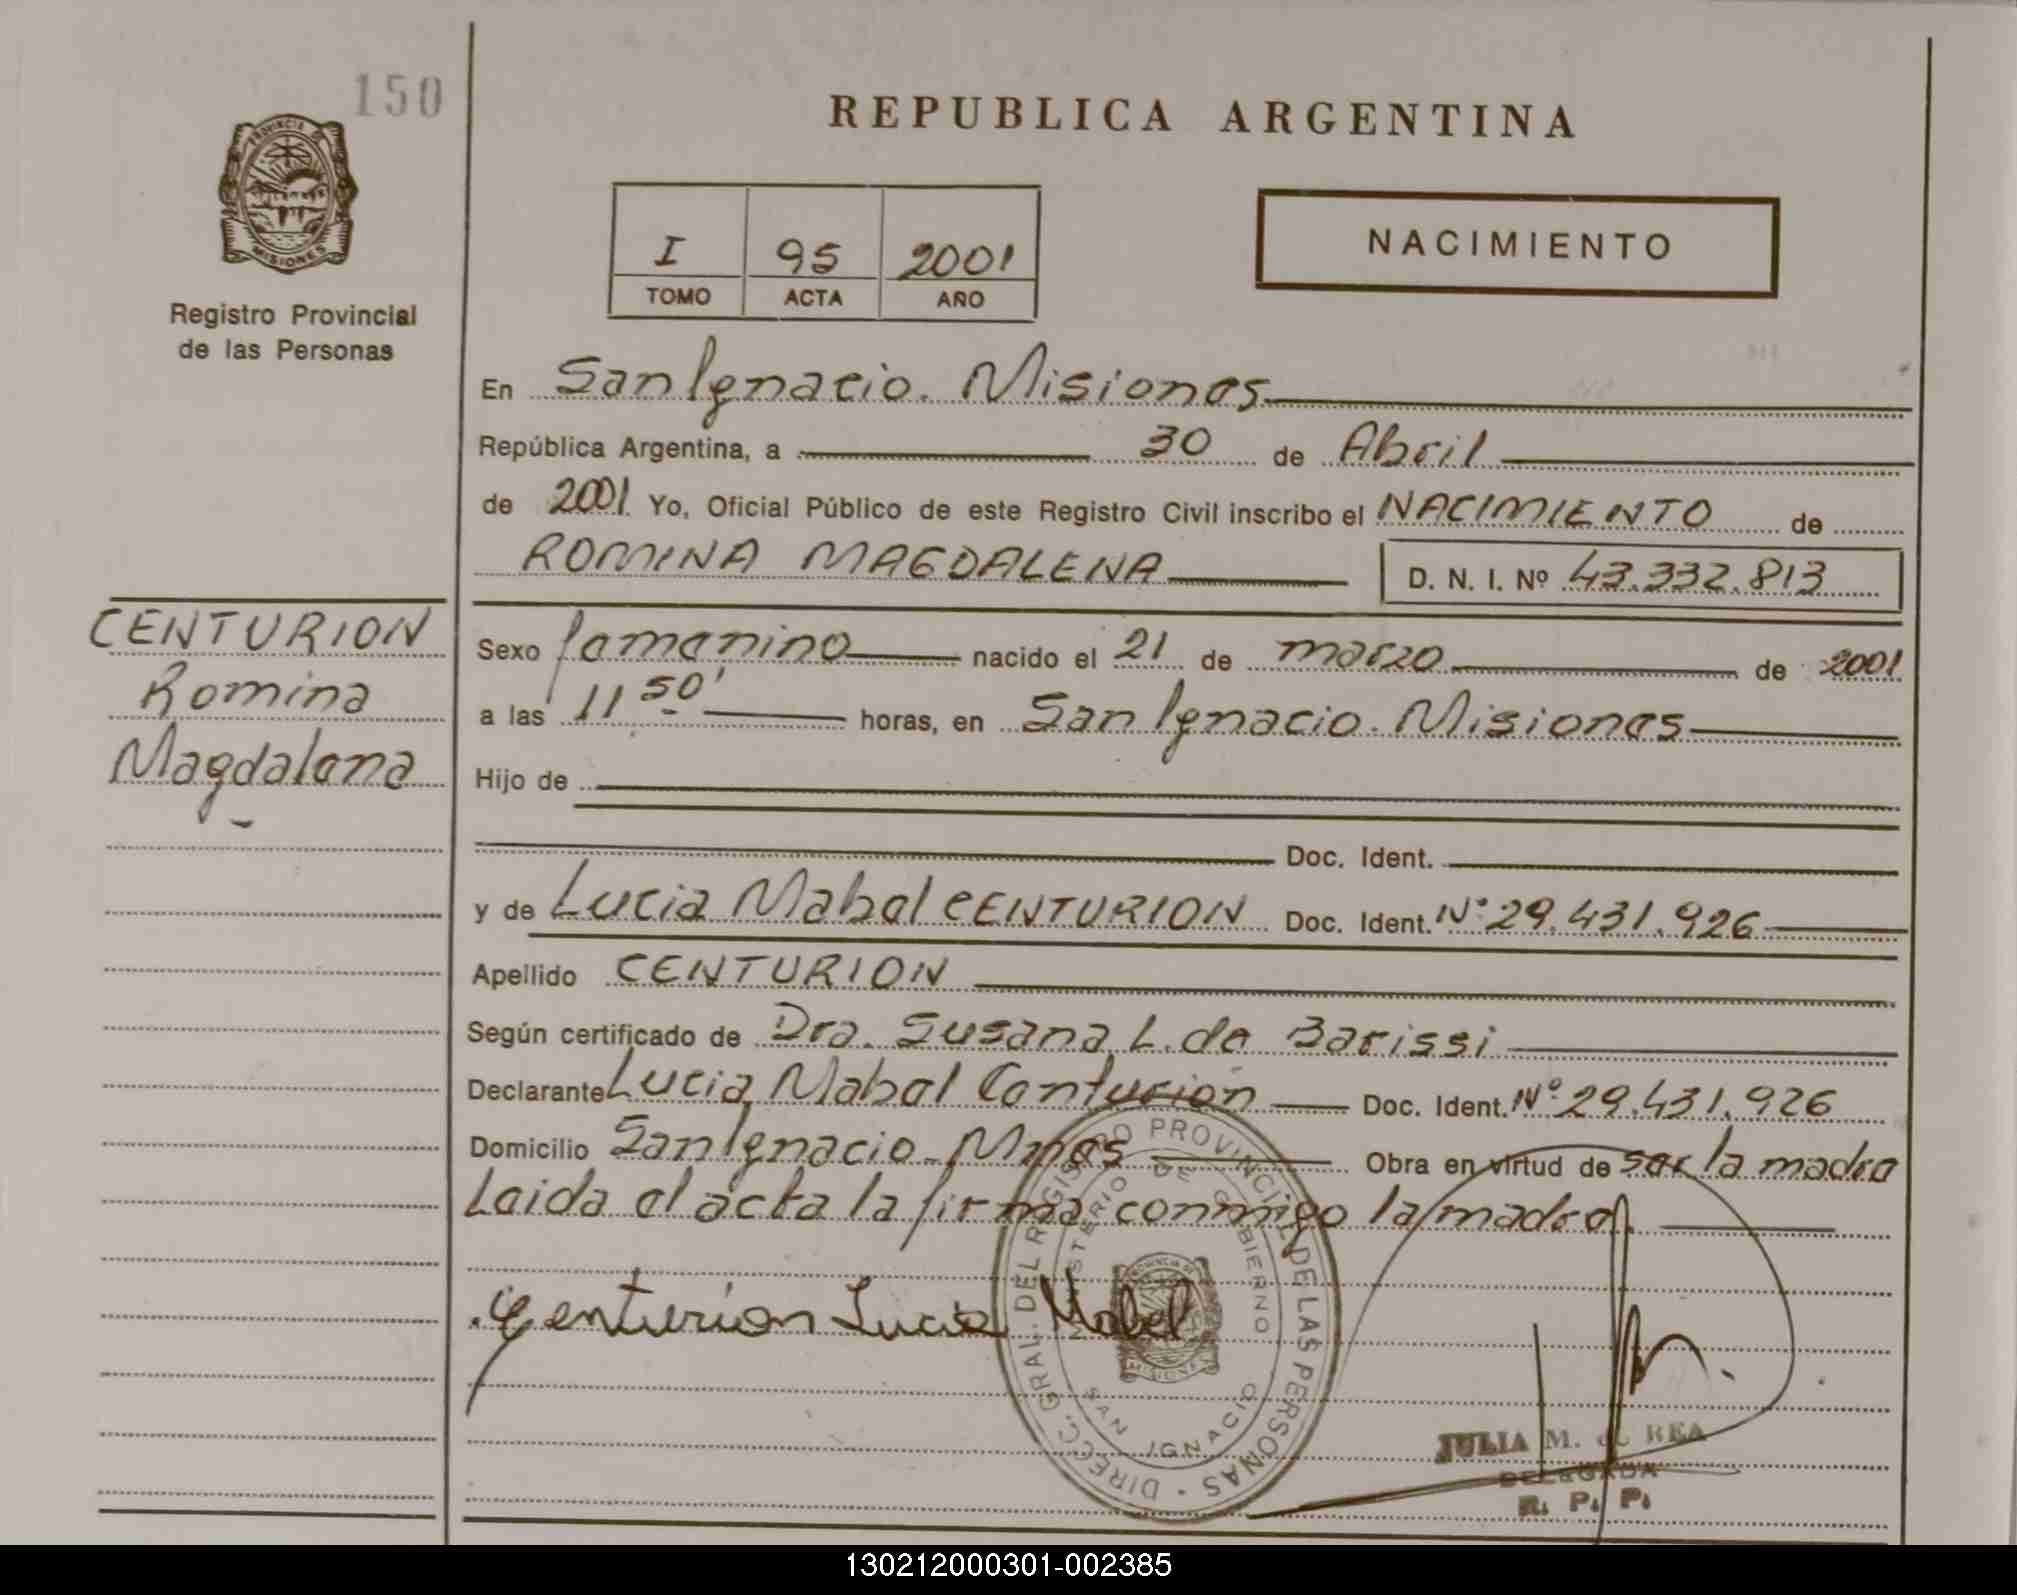 150
REPUBLICA ARGENTINA
PROVINCIA DE MISIONES
Registro Provincial
de las Personas
I 95 2001
TOMO ACTA AÑO
NACIMIENTO
En San Ignacio. Misiones
República Argentina, a 30 de Abril
de 2001 Yo, Oficial Público de este Registro Civil inscribo el NACIMIENTO de
ROMINA MAGDALENA D. N. I. Nº 43.332.813
CENTURION
Romina
Magdalena
Sexo femenino nacido el 21 de marzo de 2001
a las 11 50' horas, en San Ignacio. Misiones
Hijo de
Doc. Ident.
y de Lucia Mabel CENTURION Doc. Ident. Nº 29.431.926
Apellido CENTURION
Según certificado de Dra. Susana L. de Barissi
Declarante Lucia Mabel Centurión Doc. Ident. Nº 29.431.926
Domicilio San Ignacio. Mnes Obra en virtud de ser la madre
Leida el acta la firma conmigo la madre.
Centurion Lucia Mabel
DIRECC. GRAL. DEL REGISTRO PROVINCIAL DE LAS PERSONAS
MINISTERIO DE GOBIERNO
MISIONES
SAN IGNACIO
JULIA M. de REA
DELEGADA
R. P. P.
130212000301-002385